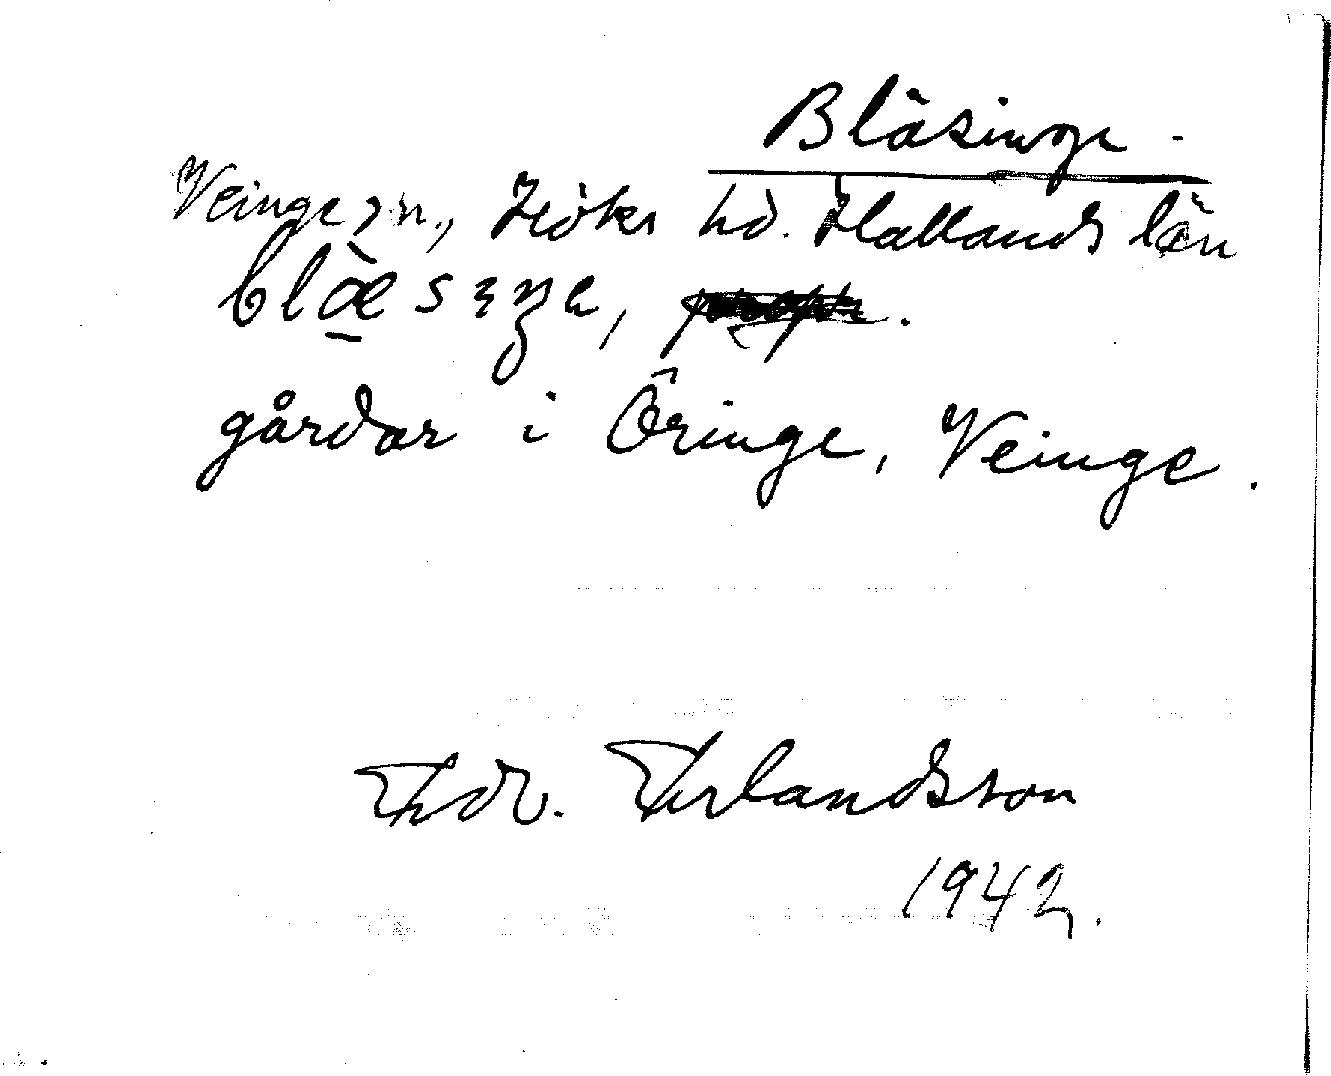 Bläsinge
Veinge sn., Höks hd. Hallands län
gårdar i Öringe, Veinge.
Edv. Erlandsson
1942.